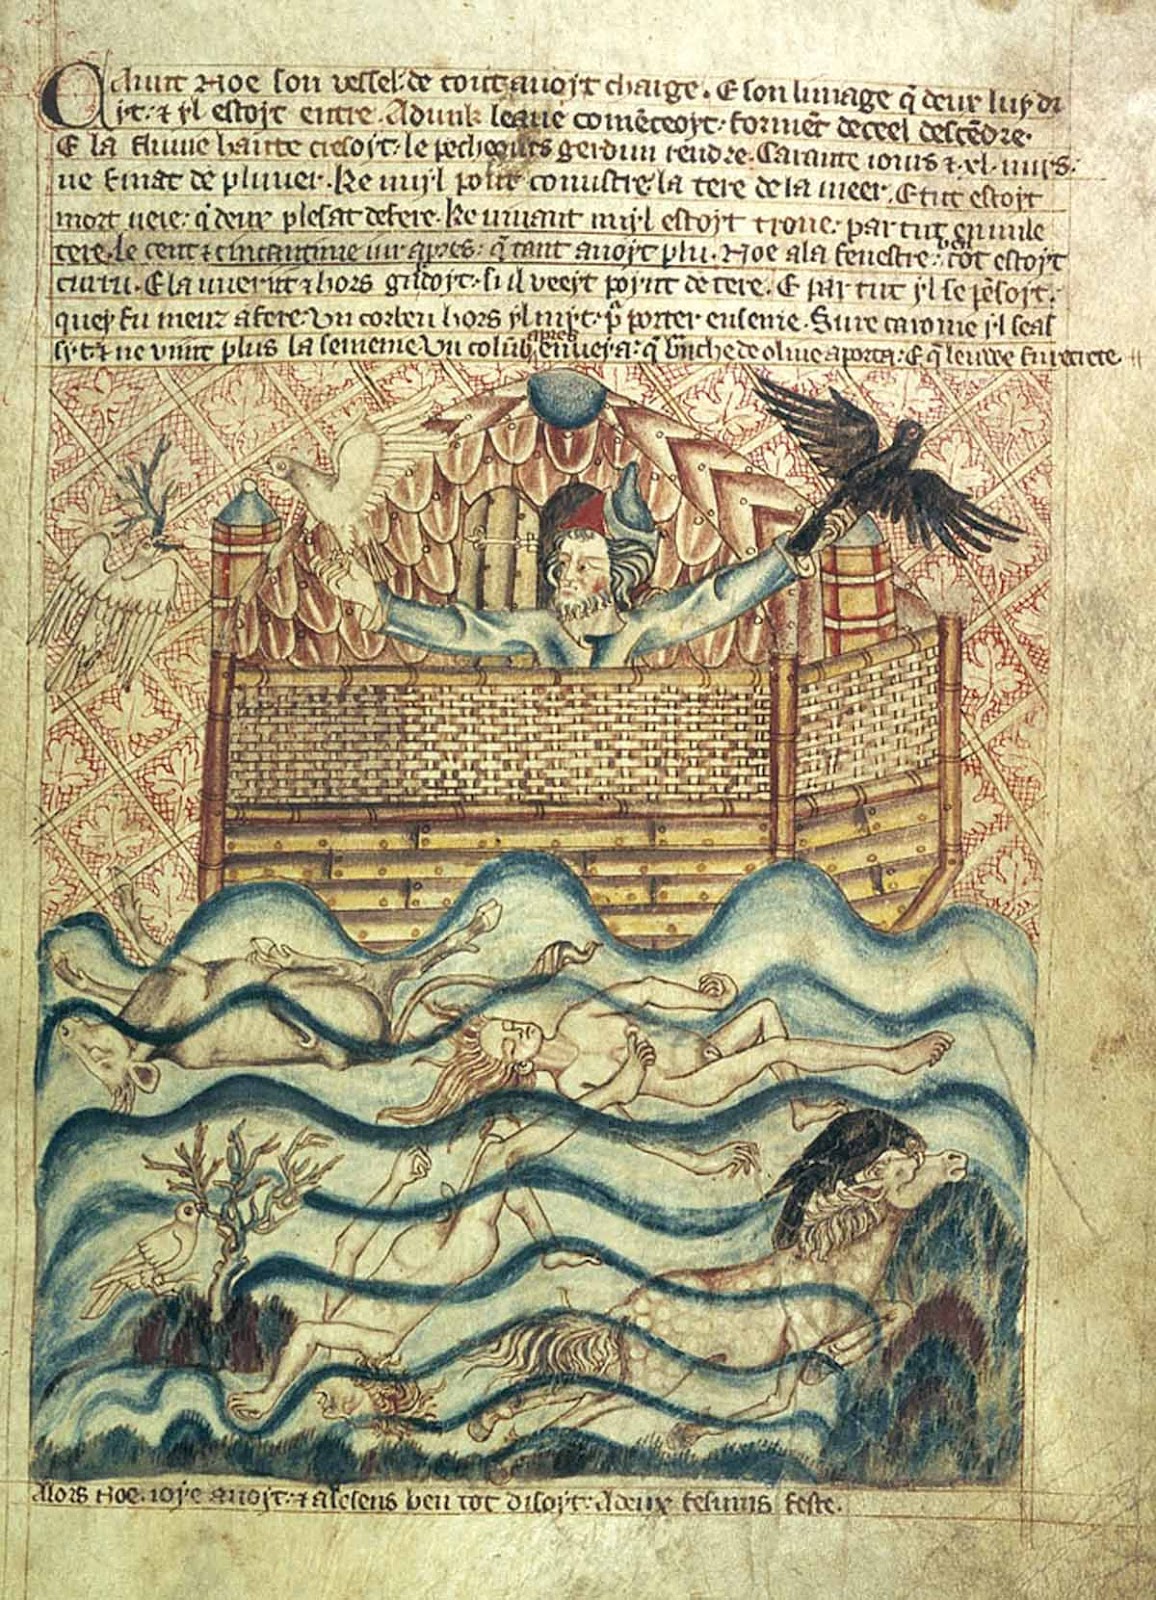 Qaunt Noe son vessel de tout avoyt charge. E son linage q̃ deux luy di
yt: ⁊ yl estoyt entre. Adunk le auie comẽceoyt: formẽt de ceel descẽdre.
E la fluuie haute cresoyt: le pecheours gerdun rendre. Carante iours ⁊ .xl. nuys:
ne finat de pluuer. Ke nuyl pout conustre: la tere de la meer. E tut estoyt
mort neie: q̃ deux plesat defere. Ke viuant nuyl estoyt troue: par tut en mile
tere. Le cent ⁊ cincantime iur apres: q̃ tant avoyt plu. Noe ala fenestre: tot estoyt
E la uuerit ⁊ hors gardoyt: si il veeyt poynt de tere. E par tut yl se pẽsoyt:
quey fu meux a fere. Un corbeu hors yl myt: p̃ porter ensenie. Sure caronie yl seas
syt: ⁊ ne vint plus la semeine. Un colũb apres enueya: q̃ brãche de oliue aporta: E
Alors Noe ioye avoyt: ⁊ a le sens ben tot disoyt: A deux fesums feste.